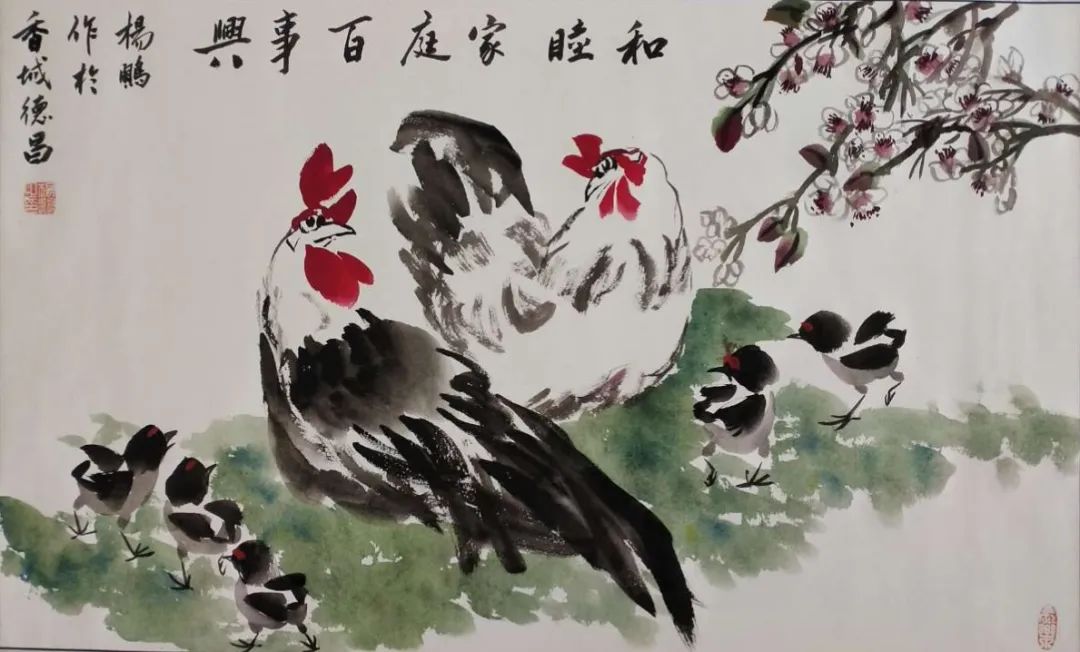 和睦家庭百事興
楊鵬
作於
香城德昌